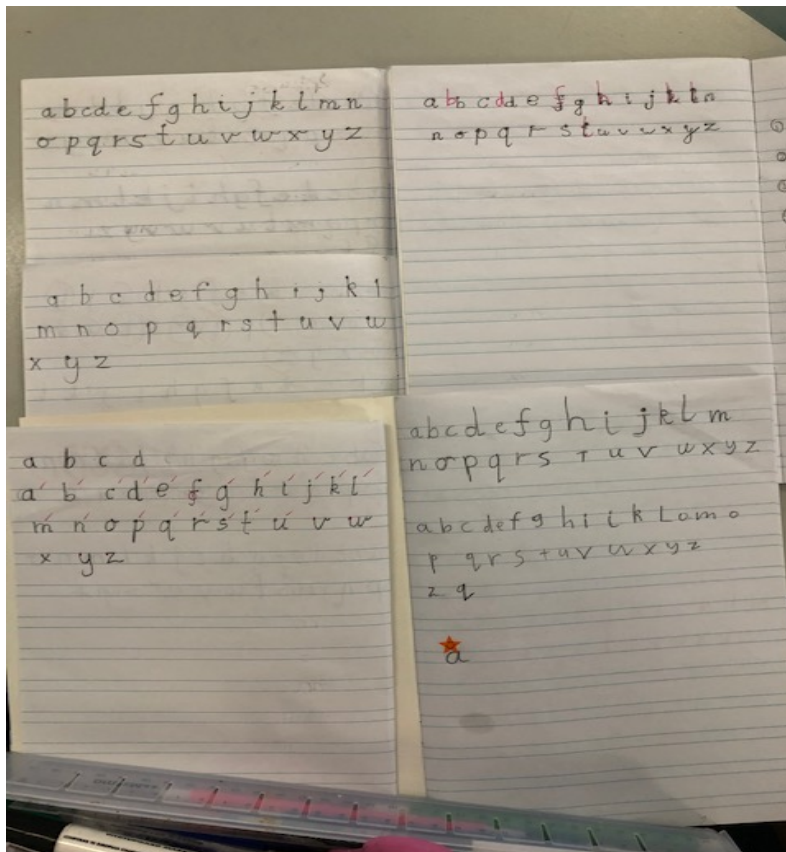 a b c d e f g h i j k l m n
o p q r s t u v w x y z
a b c d e f g h i j k l
m n o p q r s t u v w
x y z
a b c d
a b c d e f g h i j k l
m n o p q r s t u v w
x y z
a bb c dd e f g h i j k l n
n o p q r s t u v w x y z
a b c d e f g h i j k l m
n o p q r s t u v w x y z
a b c d e f g h i i k L o m o
p q r s t u v w x y z
z q
a